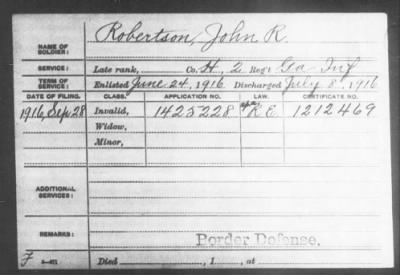 Robertson, John R.
NAME OF SOLDIER:
SERVICE: Late rank, Co. H, 2 Reg't Ga Inf
TERM OF SERVICE: Enlisted June 24, 1916 Discharged July 8, 1916
DATE OF FILING. CLASS. APPLICATION NO. LAW. CERTIFICATE NO.
1916, Sep 28 Invalid, 1423228 RE 1212469
Widow,
Minor,
ADDITIONAL SERVICES:
REMARKS: Border Defense.
Died , 1 , at